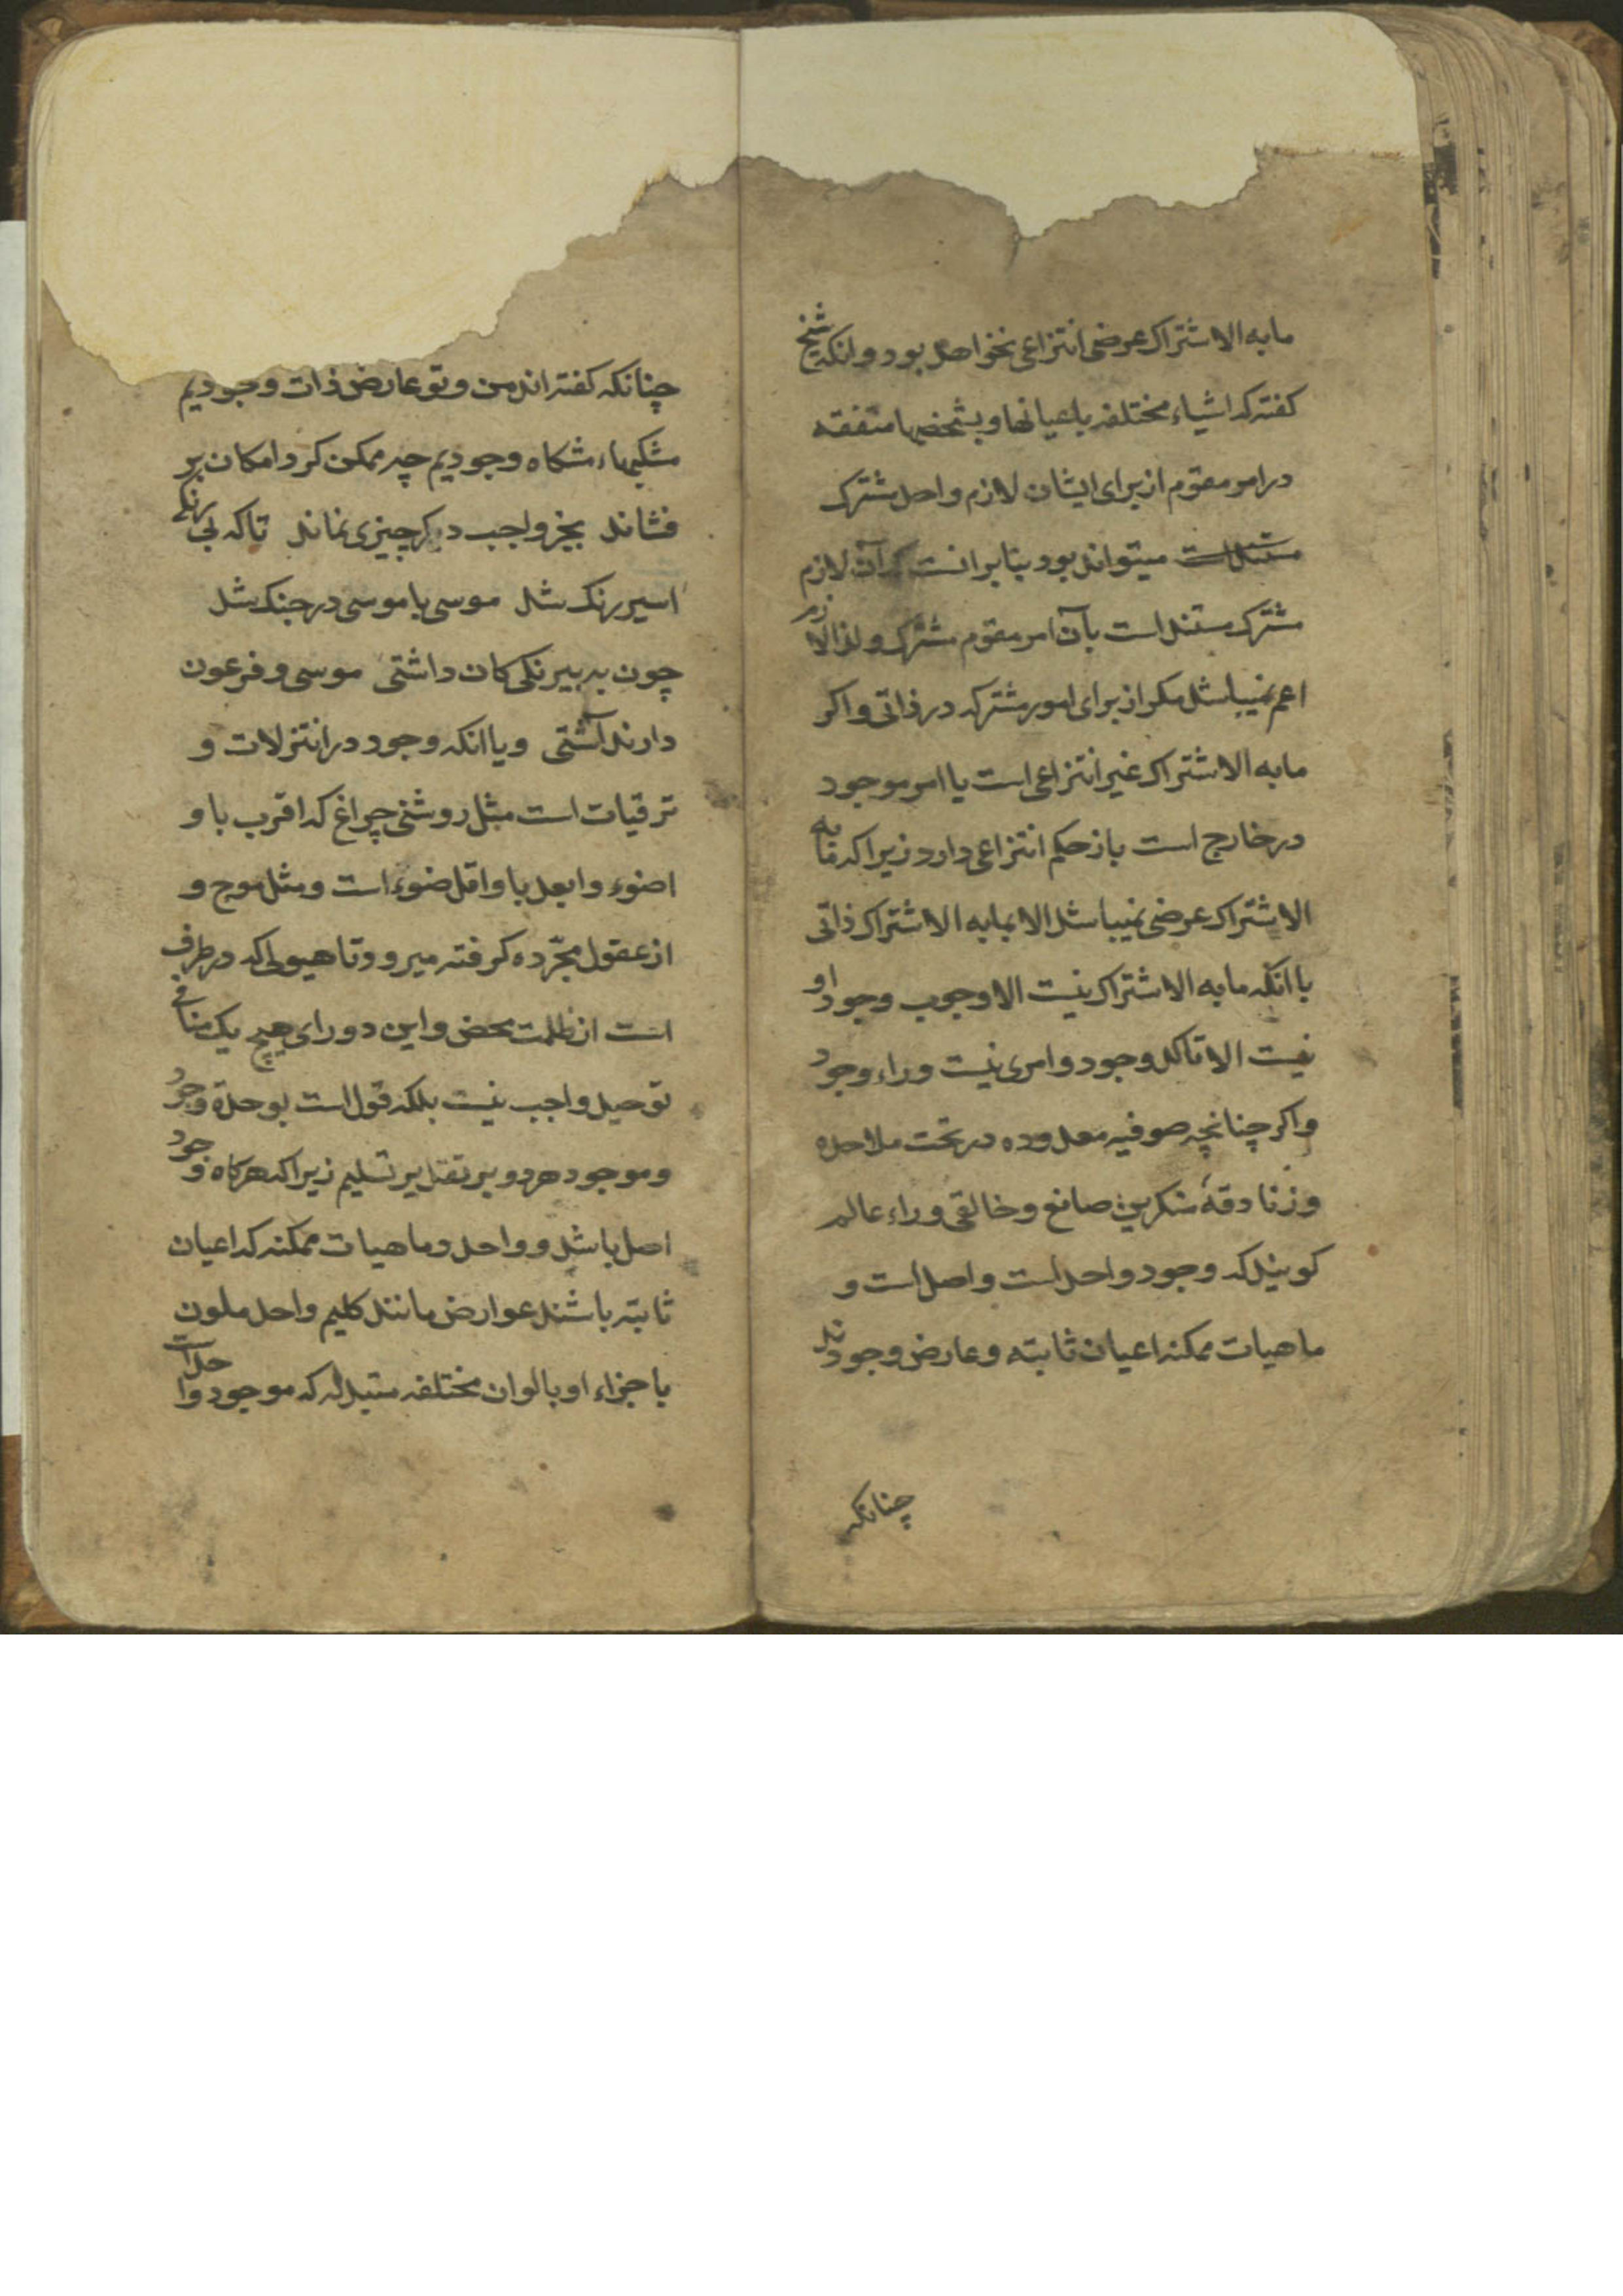 مابه الاشتراک عرضی انتزاعی نخواهد بود وانکه شیخ
کفته که اشیاء مختلفه باعیانها و بشخصها متفقه
در امر مقوم از برای ایشان لازم واحد مشترک
مستند است میتواند بود بنابر انست که آن لازم
مشترک مستند است بآن امر مقوم مشترک و لازم الا
اعم نمیباشد مکر از برای امور مشترکه در ذاتی و اکر
مابه الاشتراک غیر انتزاعی است یا امر موجود
در خارج است باز حکم انتزاعی دارد زیرا که مابه
الاشتراک عرضی نمیباشد الا بمابه الاشتراک ذاتی
با انکه مابه الاشتراک نیست الا وجوب وجود او
نیست الا تاکد وجود و امری نیست وراء وجود
و اکر چنانچه صوفیه معدوده در تحت ملاحده
و زنادقهٔ منکرین صانع و خالقی وراء عالم
کویند که وجود واحد است و اصل است و
ماهیات ممکنه اعیان ثابته و عارض وجودند
چنانکه
چنانکه کفته اند من و تو عارض ذات وجودیم
مشکهاء مشکاه وجودیم چه ممکن کرد امکان بر
فشاند بجز واجب دکر چیزی نماند تا که بی رنکی
اسیر رنک شد موسی با موسی در جنک شد
چون به بیرنکی کان داشتی موسی و فرعون
دارند آشتی و یا انکه وجود در انتزلات و
ترقیات است مثل روشنی چراغ که اقرب باو
اضوء و ابعد باو اقل ضوء است و مثل موج و
از عقول مجرّده کرفته میرود تا هیولی که در طرف
است از ظلمت محض و این دو رای هیچ یک منافی
توحید واجب نیست بلکه قول است بوحدة وجود
و موجود هر دو بر تقدیر تسلیم زیرا که هرکاه وجود
اصل باشد و واحد و ماهیات ممکنه که اعیان
ثابته باشند عوارض مانند کلیم واحد ملون
باجزاء او بالوان مختلفه متبدله که موجود واحد است